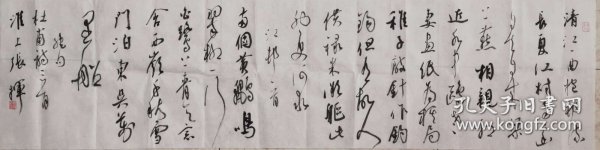 清江一曲抱村流
長夏江村事事幽
自去自来梁
上燕相親相
近水中鷗老
妻畫紙為棋局
稚子敲針作釣
鈎但有故人
供禄米微軀此
外更何求
江村一首
両個黄鸝鳴
翠柳一行
白鷺上青天窗
含西嶺千秋雪
門泊東吴萬
里船
絶句
杜甫詩二首
淮上張輝